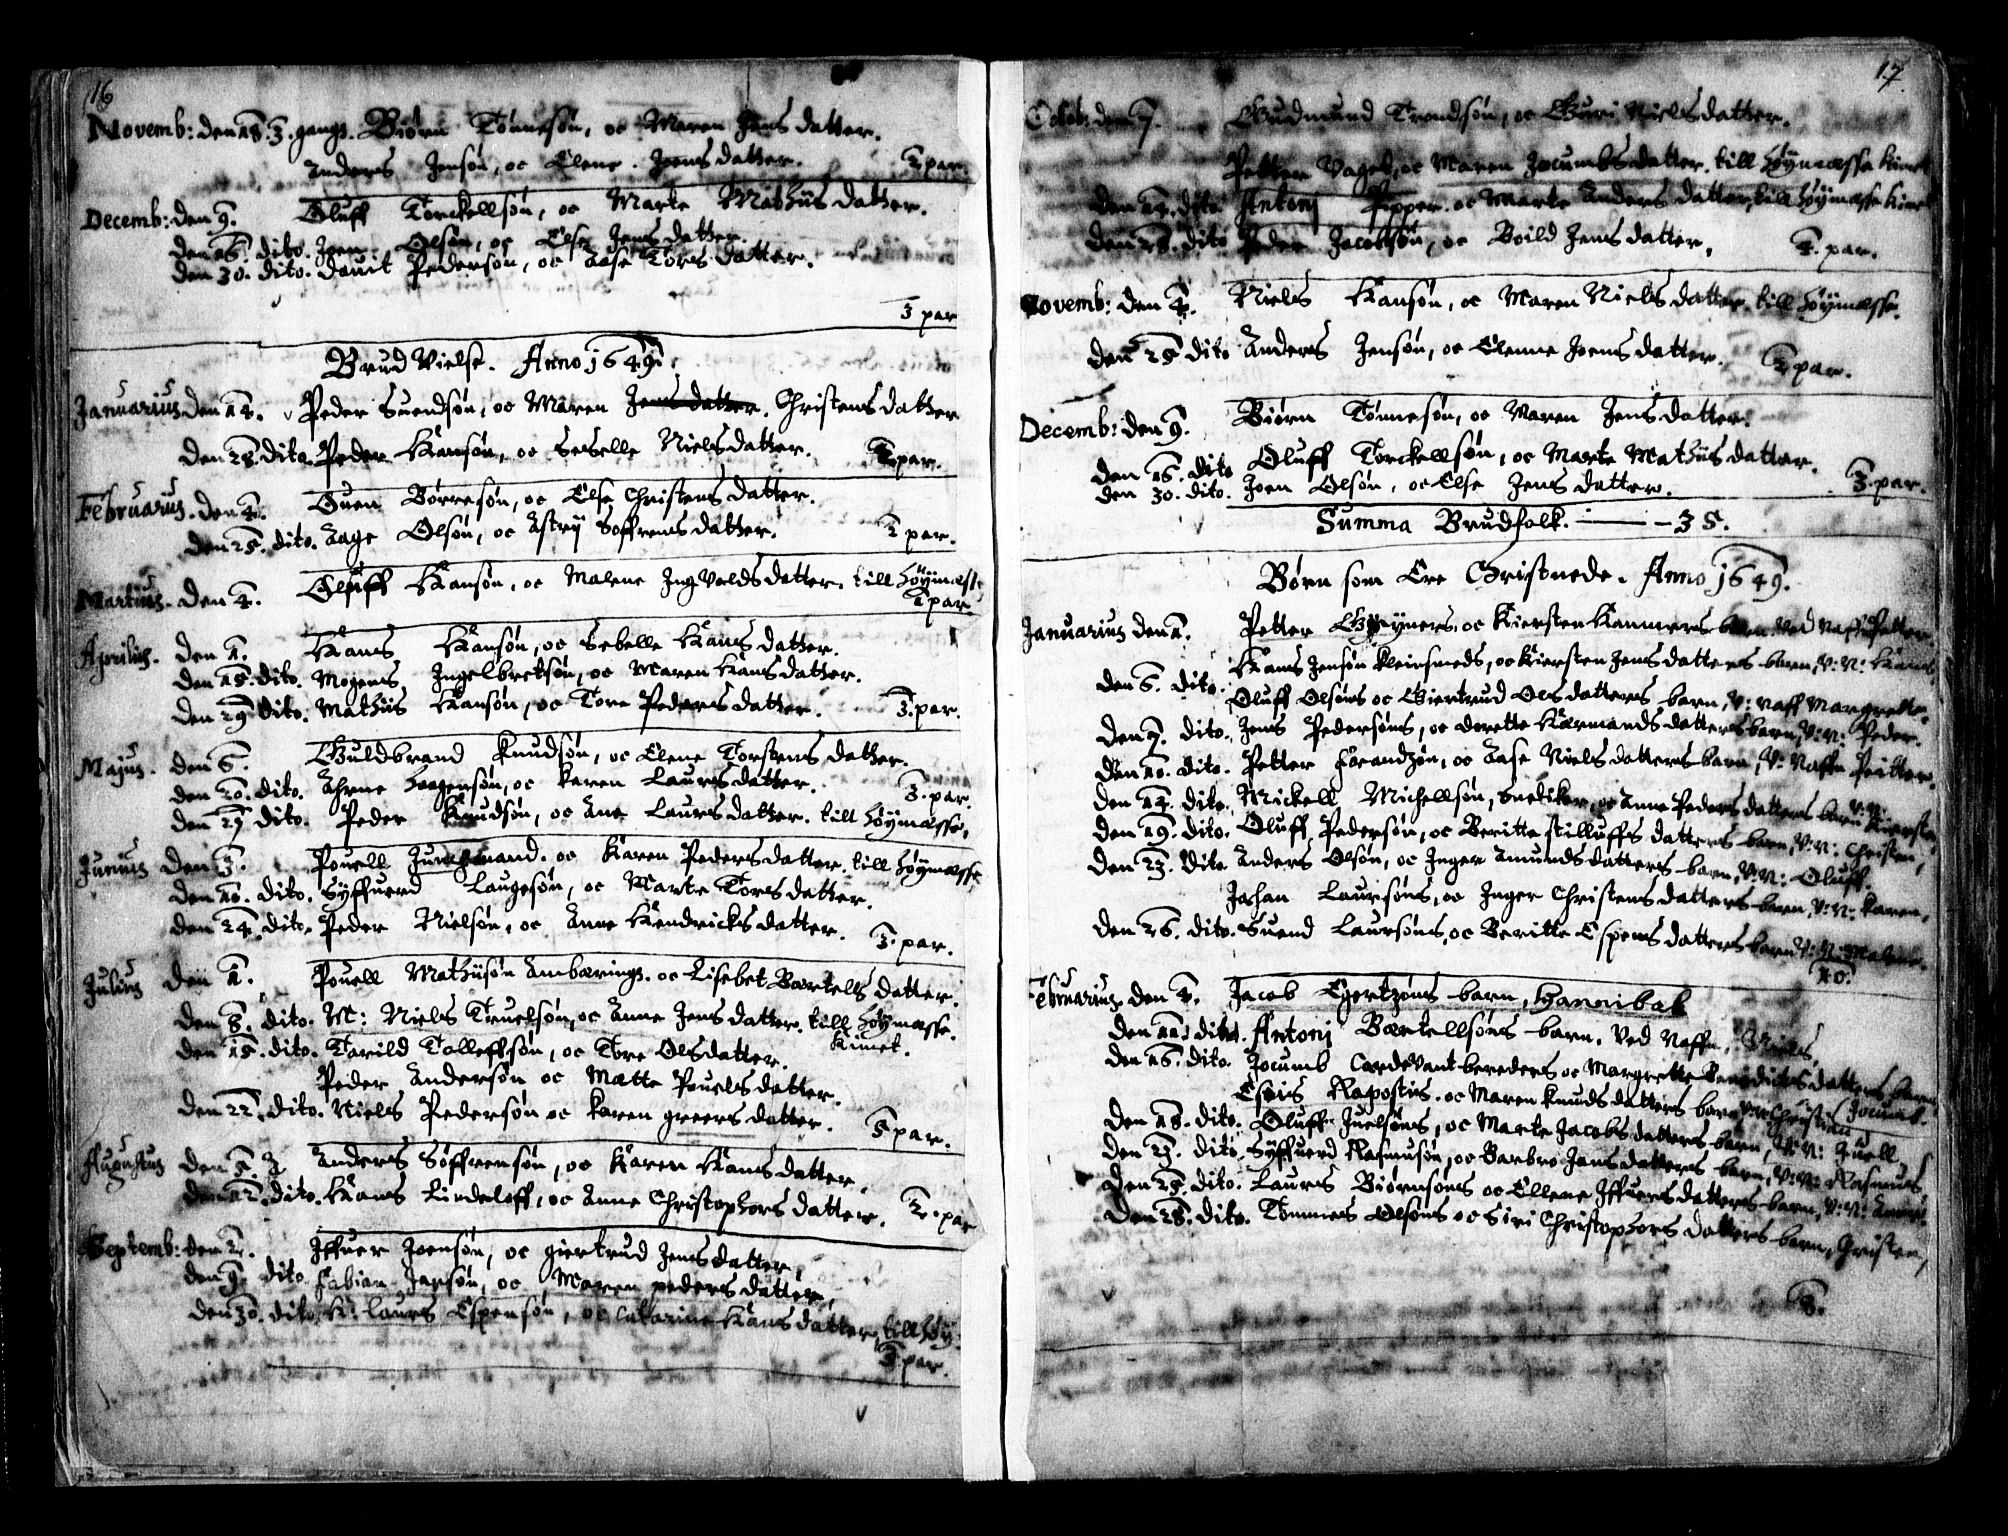 16
Novemb: den 18. 3. gangs. Biørn Tønnesøn, oc Maren Jens datter.
Anders Jensøn, oc Elene Joens datter. 2 par.
Decemb: den 9. Oluff Torckellsøn, oc Marte Mathiis datter.
den 16. dito. Joen Olsøn, oc Else Jens datter.
den 30. dito. Dauit Pedersøn, oc Aase Tors datter.
3 par
Brud Vielse. Anno 1649.
Januarius den 14. Peder Suendsøn, oc Maren Jens datter. Christens datter
den 28. dito. Peder Hansøn, oc Seselle Niels datter. 2. par.
Februarius. den 4. Ouen Børresøn, oc Else Christens datter.
den 25. dito. Aage Olsøn, oc Astrij Soffrens datter. 2 par.
Martius. den 4. Oluff Hansøn, oc Malene Ingvolds datter. till Høijmesse
1 par.
Aprilis. den 1. Hans Hansøn, oc Sebelle Hans datter.
den 15. dito. Mogens Ingelbretsøn, oc Maren Hans datter.
den 29 dito. Mathiis Hansøn, oc Tore Peders datter. 3. par.
Majus. den 6. Guldbrand Knudsøn, oc Elene Torstens datter.
den 20. dito. Ahrne Haagensøn, oc Karen Laurs datter. 3. par.
den 27 dito. Peder Knudsøn, oc Ane Laurs datter. till Høijmesse.
Junius den 3. Pouell oc Karen Peders datter. till Høijmesse
den 10. dito. Syffuerd Laugesøn, oc Marte Tors datter.
den 24. dito. Peder Nielsøn, oc Anne Hendricks datter. 3. par.
Julius den 1. Pouell Mathiisøn Ambørings. oc Lisebet Bartells datter.
den 8. dito. M: Niels Truelsøn, oc Anne Jens datter. till Høijmesse.
kimet.
den 15. dito. Tarild Tolleffsøn, oc Tore Olsdatter.
Peder Andersøn oc Mætte Pouels datter.
den 22. dito. Niels Pedersøn oc Karen greers datter. 5 par.
Augustus den 5. Anders Søffrensøn, oc Karen Hans datter.
den 12. dito. Hans Lindeloff, oc Anne Christophers datter. 2. par
Septemb: den 2. Iffuer Joensøn, oc giertrud Jens datter
den 9. dito Fabian Jansøn, oc Maren peders datter,
den 30. dito. H: Laurs Espensøn, oc Catarine Hans datter, till Høij
3. par.
17.
Octob: den 7. Gudmund Trondsøn, oc Guri Niels datter.
Petter Vaget, oc Maren Jocumbs datter. till Høijmesse kimet
den 14. dito Antonj Pipper. oc Marte Anders datter, till Høijmesse kimet
den 28. dito Peder Jacobsøn, oc Boild Jens datter. 4. par.
Novemb: den 4. Niels Hansøn, oc Maren Niels datter. till Høijmesse.
den 25 dito Anders Jensøn, oc Elenne Joens datter. 2 par.
Decemb: den 9. Biørn Tønnesøn, oc Maren Jens datter.
den 16. dito Oluff Torckellsøn, oc Marte Mathiis datter.
den 30. dito. Joen Olsøn, oc Else Jens datter. 3. par.
Summa Brudfolk. 35.
Børn som Ere Christnede. Anno 1649.
Januarius den 1. Petter oc Kiersten Hanners barn ved Naffn Petter
Hans Jensøn Kleinsmeds, oc Kiersten Jens datters barn, V: N: Hans
den 6. dito. Oluff Olsøns oc Giertrud Ols datters barn, V: naff Margrette.
den 7. dito. Jens Pedersøns, oc dorette Harmands datters barn, V: N: Peder.
den 10. dito. Petter Frandzøn, oc Aase Niels datters barn, V: Naffn Peitter.
den 14. dito. Mickell Michellsøn, oc Anne Peders datters barn V: N: Kiersten,
den 19. dito. Oluff Pedersøn, oc Beritte stilluffs datters barn, V: N: Christen,
den 23. dito Anders Olsøn, oc Inger Amunds datters barn, V: N: Oluff.
Johan Laursøns, oc Inger Christens datters barn, V: N: Karen,
den 26. dito. Suend Laursøns, oc Beritte Espens datters barn V: N: Malene.
10.
Februarius den 4. Jacob Egertzøns barn, Hannibal
den 11. dito. Antonj Bartellsøns barn. Ved Naffn, Niels
den 16. dito. Jocumb Cordevantbereders oc Margrette Benedictes datters barn
Jocumb.
Esais Rapostius. oc Maren Knuds datters barn V: N: Christian
den 18. dito. Oluff Juelsøns, oc Marte Jacobs datters barn, V: N: Juell
den 21. dito, Syffuerd Rasmusøn, oc Barbro Jans datters barn, V: N: Rasmus,
den 25. dito. Laurs Biørnsøns oc Ellene Iffuers datters barn, V: N:
den 28. dito. Tommes Olsøns oc Siri Christophers datters barn, Christen,
8.